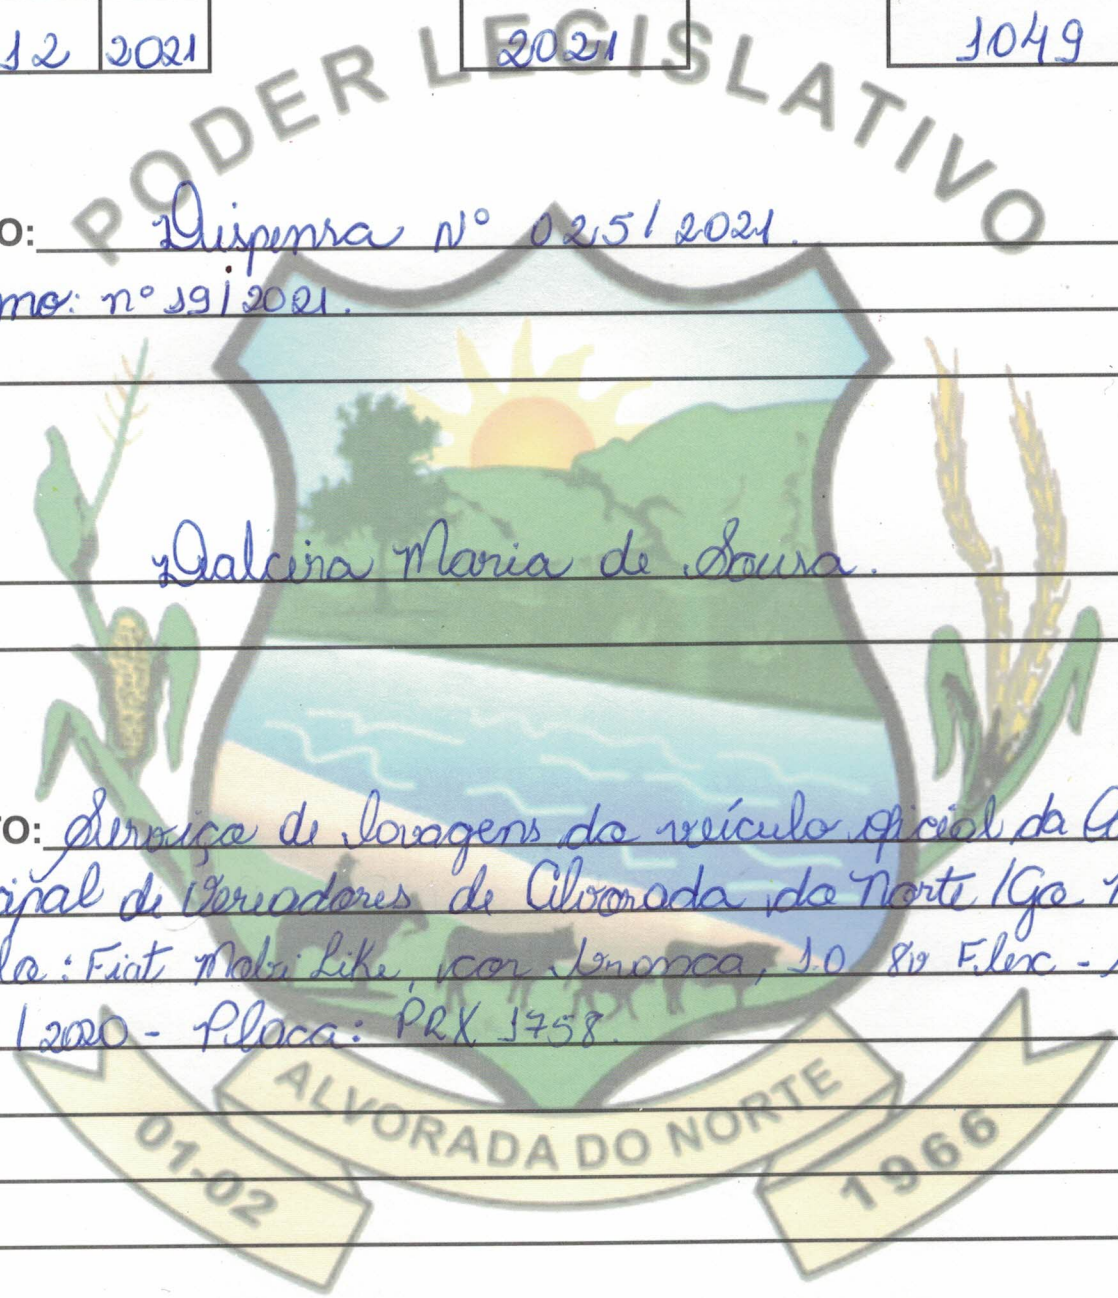 12 2021 2021 1049
PODER LEGISLATIVO
O: Dispensa Nº 025/2021.
mo: nº 19/2021.
Dalcina Maria de Sousa.
TO: Serviço de lavagens do veículo oficial da
ipal de Vereadores de Alvorada do Norte/Go
lo: Fiat Mobi Like, cor branca, 1.0 8v Flex -
/2020 - Placa: PRX 1758.
ALVORADA DO NORTE
01-02 1966